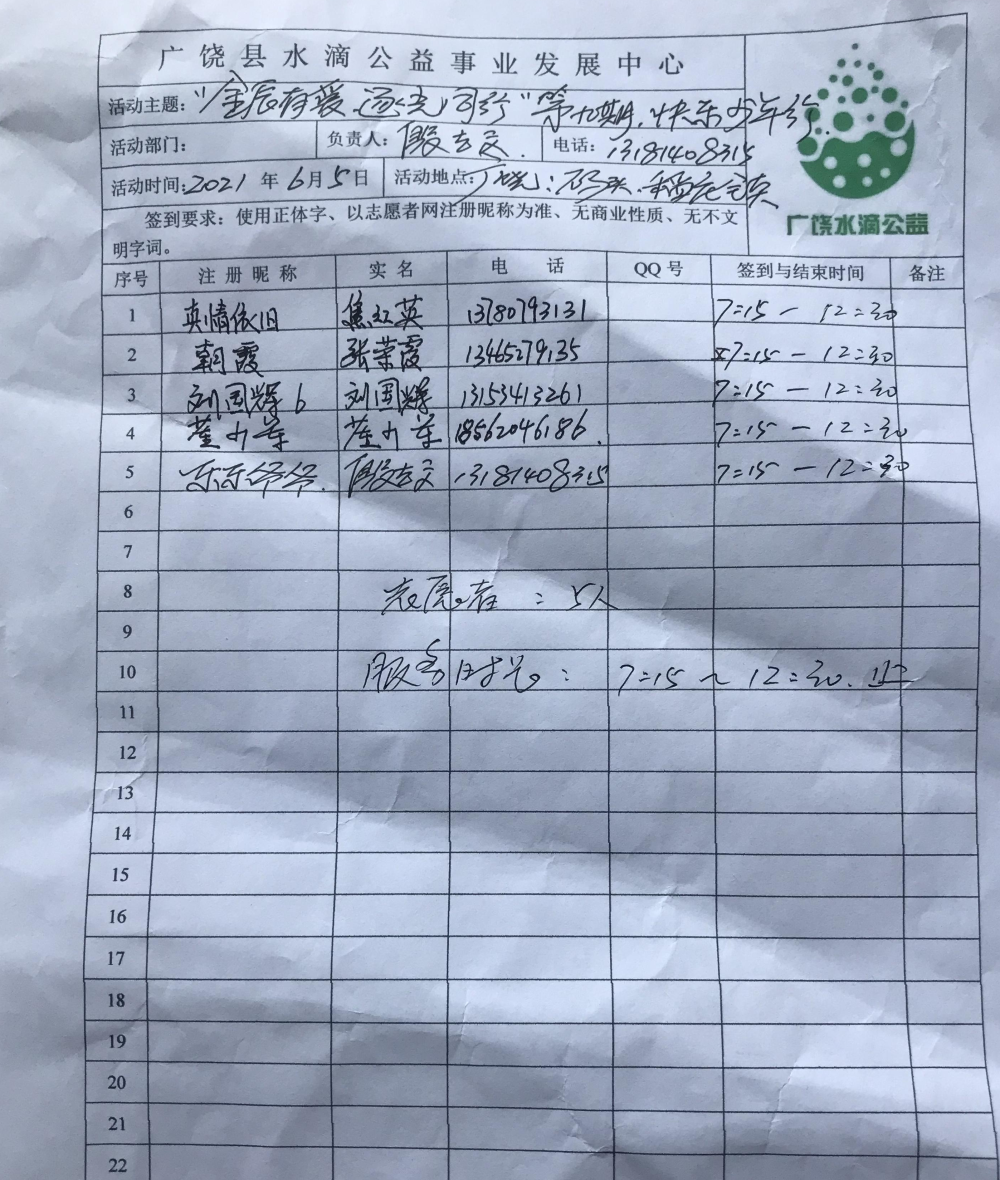 广饶县水滴公益事业发展中心
活动主题："金辰有爱 逐光同行"第九期.快乐少年行.
活动部门： 负责人：殷立文. 电话：13181408315
活动时间：2021 年 6月5日 活动地点：广饶：
签到要求：使用正体字、以志愿者网注册昵称为准、无商业性质、无不文
明字词。
广饶水滴公益
序号 注册昵称 实名 电 话 QQ号 签到与结束时间 备注
1 真情依旧 焦红英 13780793131 7:15 — 12:30
2 朝霞 张荣霞 13465279135 7:15 — 12:30
3 刘国辉6 刘国辉 13153413261 7:15 — 12:30
4 18562046186. 7:15 — 12:30
5 东东爷爷. 殷立文 13181408315 7:15 — 12:30
6
7
8 志愿者：5人
9
10 服务时长：7:15 ~ 12:30.
11
12
13
14
15
16
17
18
19
20
21
22